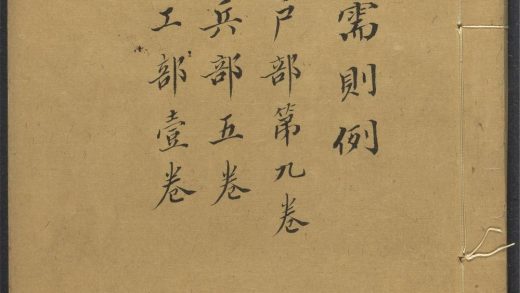 需則例
户部第九卷
兵部五卷
工部壹卷